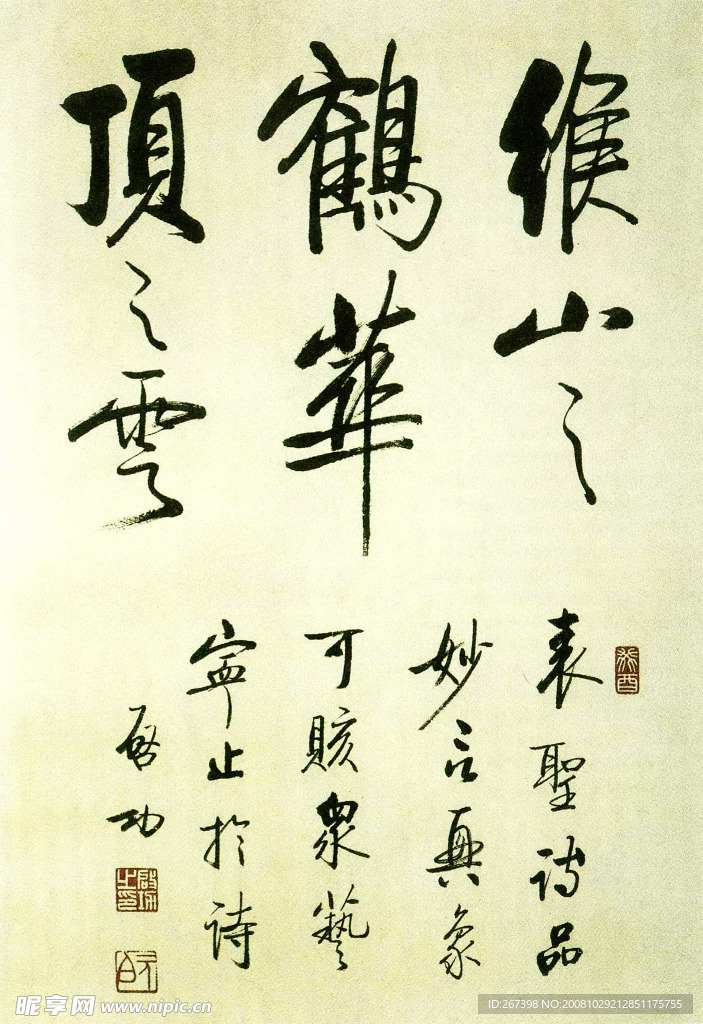 緱山之
鶴華
頂之雲
癸酉
表聖詩品
妙言興象
可賅衆藝
寧止於詩
啓功
啟功之印
元白
昵享网 www.nipic.cn
ID:267398 NO:20081029212851175755